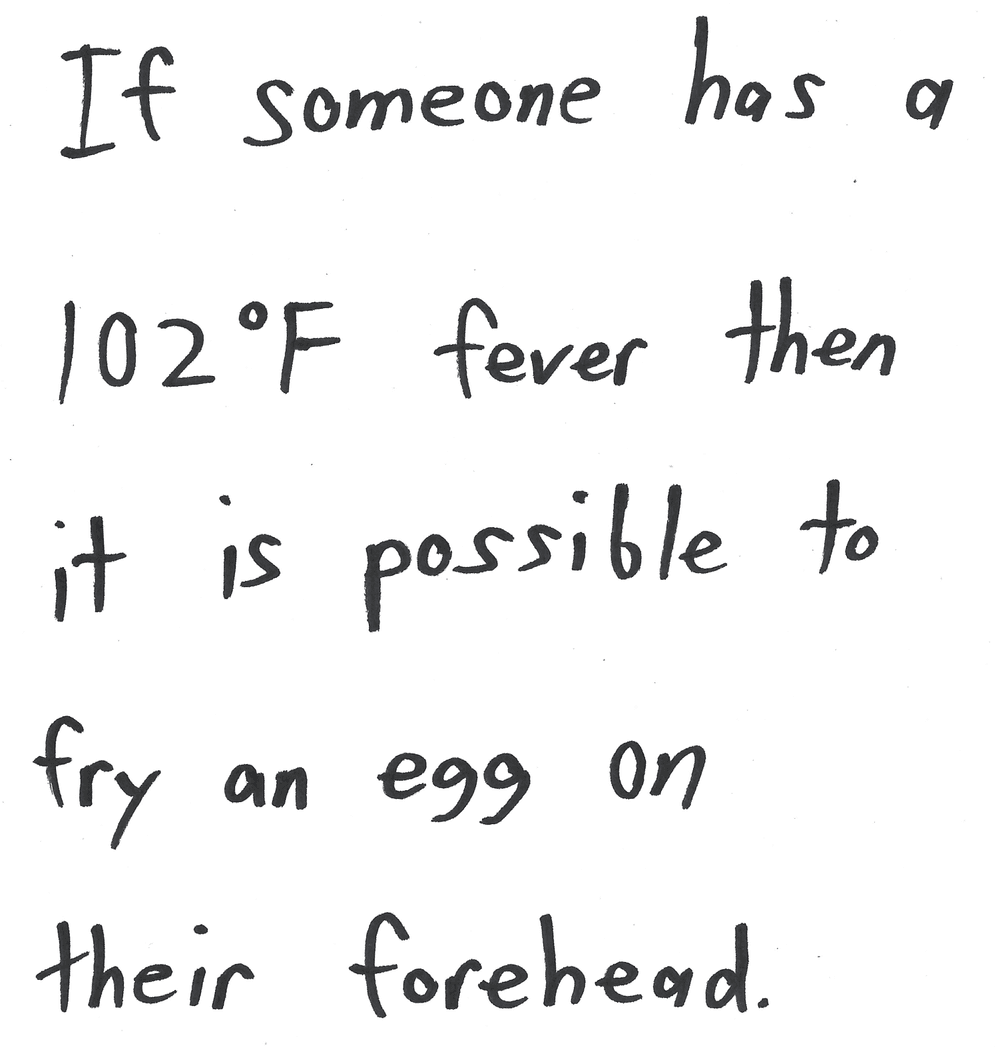 If someone has a
102°F fever then
it is possible to
fry an egg on
their forehead.